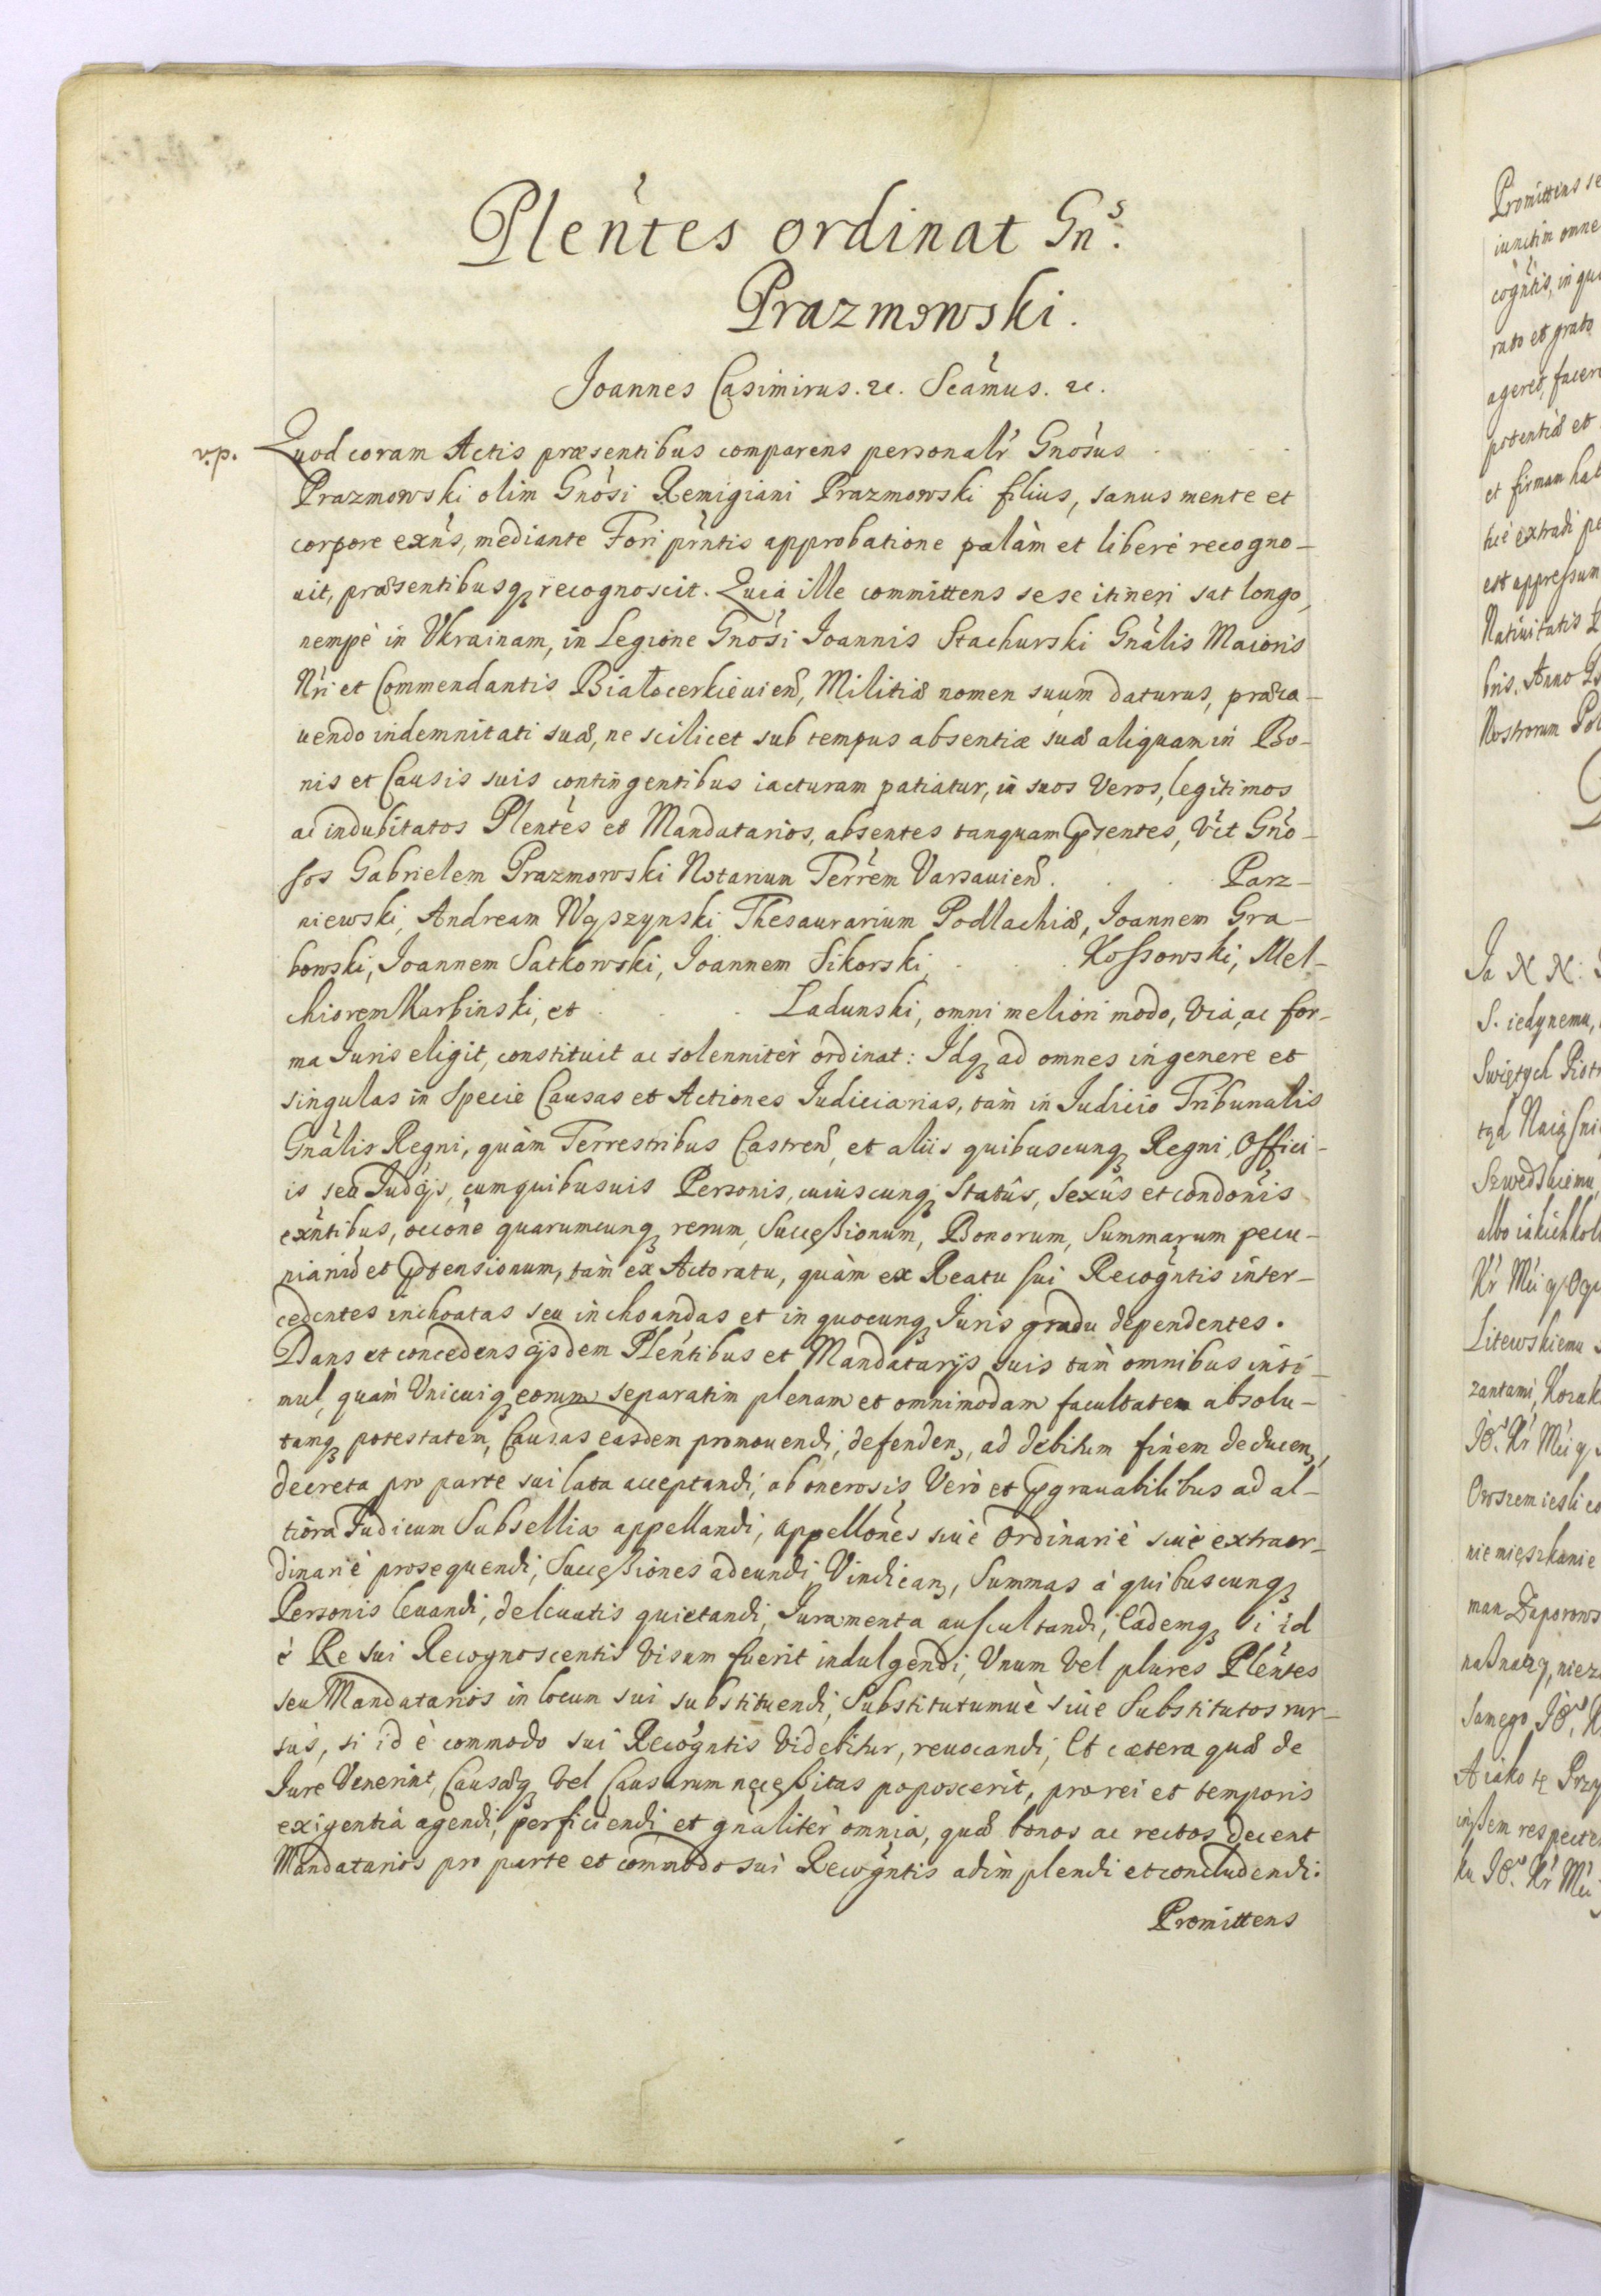 Plen̄tes ordinat Gn̄s.
Prazmowski.
Joannes Casimirus. &c. Scāmus. &c.
v.p. Quod coram Actis præsentibus comparens personalr̄ Gnōsus . . . .
Prazmowski olim Gnōsi Remigiani Prazmowski filius, sanus mente et
corpore exn̄s, mediante Fori prn̄tis approbatione palàm et liberè recogno-
uit, præsentibusq₃ recognoscit. Quia ille committens sese itineri sat longo,
nempè in Vkrainam, in Legione Gnōsi Joannis Stachurski Gnālis Maioris
Nr̄i et Commendantis Białocerkieuień, Militiæ nomen suum daturus, præca-
uendo indemnitati suæ, ne scilicet sub tempus absentiæ suæ aliquam in Bo-
nis et Causis suis contingentibus iacturam patiatur, in suos Veros, legitimos
ac indubitatos Plen̄tes et Mandatarios, absentes tanquam p̄sentes, Vc̄t Gn̄o-
sos Gabrielem Prazmowski Notarium Terr̄em Varsauień. . . Parz-
niewski, Andream Wyszynski Thesaurarium Podlachiæ, Joannem Gra-
bowski, Joannem Satkowski, Joannem Sikorski, . . Kossowski, Mel-
chiorem Karbinski, et . . . Ladunski, omni meliori modo, via, ac for-
ma Juris eligit, constituit ac solennitèr ordinat: Idq₃ ad omnes in genere et
singulas in specie Causas et Actiones Judiciarias, tàm in Judicio Tribunalis
Gnālis Regni, quàm Terrestribus Castreń, et aliis quibuscunq₃ Regni, Offici-
is seu Judc̄ijs, cum quibusuis Personis, cuiuscunq₃ Statûs, Sexûs et condōnis
exn̄tibus, occōne quarumcunq₃ rerum, Successionum, Bonorum, Summarum pecu-
niariū et p̄tensionum, tàm ex Actoratu, quàm ex Reatu sui Recogn̄tis inter-
cedentes inchoatas seu inchoandas et in quocunq₃ Juris gradu dependentes.
Dans et concedens ijsdem Plen̄tibus et Mandatarijs suis tàm omnibus insi-
mul, quàm Vnicuiq₃ eorum separatim plenam et omnimodam facultatem absolu-
tamq₃ potestatem, Causas easdem promouendi, defenden₃, ad debitum finem deducen₃,
decreta pro parte sui lata acceptandi, ab onerosis Verò et p̄grauabilibus ad al-
tiora Judicum Subsellia appellandi, appellōnes siuè ordinariè siuè extraor-
dinariè prosequendi, Successiones adeundi Vindican₃, Summas à quibuscunq₃
Personis leuandi, de leuatis quietandi, Juramenta auscultandi, Eademq₃ si id
è Re sui Recognoscentis visum fuerit indulgendi, Vnum vel plures Plen̄tes
seu Mandatarios in locum sui substituendi, Substitutumuè siue Substitutos rur-
sus, si id è commodo sui Recogn̄tis videbitur, reuocandi, Et cætera quæ de
Jure Venerint, Causæq₃ vel Causarum necessitas poposcerit, pro rei et temporis
exigentia agendi, perficiendi et gnālitèr omnia, quæ bonos ac rectos decent
Mandatarios pro parte et commodo sui Recogn̄tis adimplendi et concludendi.
Promittens
Promittens se
iunctim omne
cogn̄tis, in qu
rato et grato
ageret, facer
potentiæ et
et firmam hab
est appressum
Natiuitatis
bris. Anno
Nostrorum Pol
Ja N N:
S. iedynemu,
Swiętych Piotr
Szwedskiemu
albo iakichkol
Litewskiemu
zantami, Kozak
nie mięszkanie
man Zaporows
Samego
A iako tę Przy
respecte